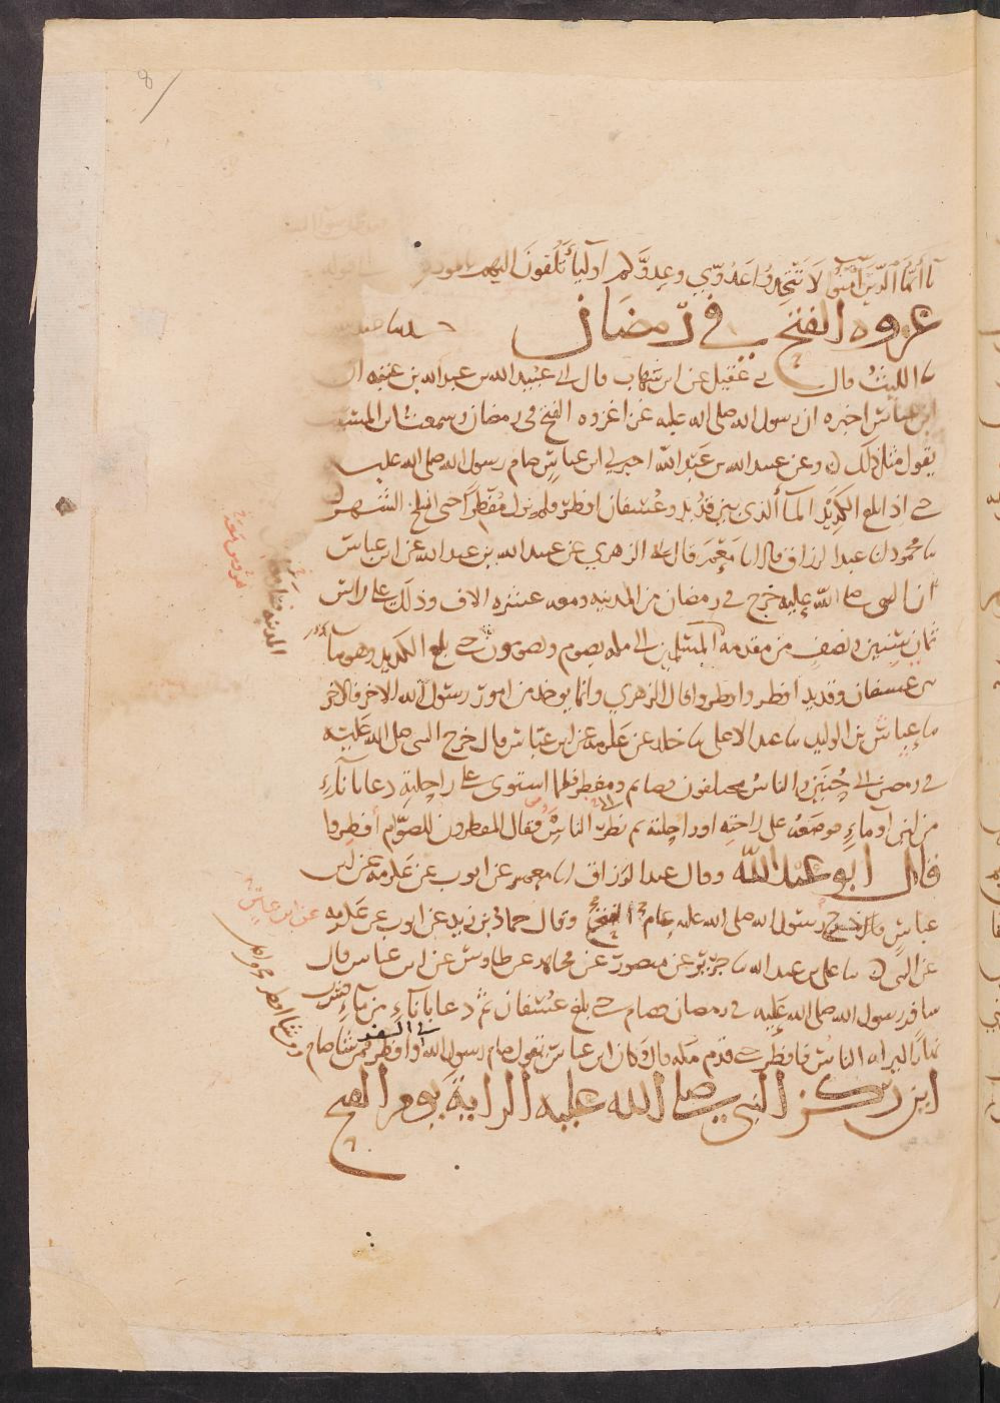 8
يا أيها الذين آمنوا لا تتخذوا عدوي وعدوكم اوليا تلقون اليهم بالمودة
غزوه الفتح في رمضان
ىا الليث قال ني عقيل عن ابن شهاب قال اني عبيد الله بن عبد الله بن عتبه ان
ابن عباس اخبره ان رسول الله صلى الله عليه غزا غزوه الفتح في رمضان وسمعت ابن المسيب
يقول مثل ذلك وعن عبيد الله بن عبد الله اخبرني ابن عباس صام رسول الله صلى الله عليه
حتى اذا بلغ الكديد المآ الذي بين قديد وعسفان افطر فلم يزل مفطرا حتى انسلخ الشهر
ىا محمود انا عبد الرزاق قال انا معمر قال اني الزهري عن عبيد الله بن عبد الله عن ابن عباس
ان النبي صلى الله عليه خرج في رمضان من المدينه ومعه عشره الاف وذلك على راس
ثمان سنين ونصف من مقدمه المدينه
المسلمين الى مكه يصوم ويصومون حتى بلغ الكديد وهو مآ
بين عسفان وقديد افطر وافطروا قال الزهري وانما يوخذ من امور رسول الله الاخر فالاخر
ىا عياش بن الوليد ىا عبد الاعلى ىا خالد عن عكرمه عن ابن عباس قال خرج النبي صلى الله عليه
في رمضن الى حنين والناس مختلفون فصايم ومفطر فلما استوى على راحلته دعا بانآء
من لبن او مآء فوضعه على راحته او راحلته ثم نظر الى الناس فقال المفطرون للصوام افطروا
قال ابو عبد الله وقال عبد الرزاق انا معمر عن ايوب عن عكرمه عن ابن
عباس قال خرج رسول الله صلى الله عليه عام الفتح وقال حماد بن زيد عن ايوب عن عكرمه
عن ابن عباس
عن النبي ىا علي بن عبد الله ىا جرير عن منصور عن مجاهد عن طاوس عن ابن عباس قال
سافر رسول الله صلى الله عليه في رمضان فصام حتى بلغ عسفان ثم دعا بانآء من مآء فشرب
نهارا ليراه الناس فافطر حتى قدم مكه قال وكان ابن عباس يقول صام رسول الله في السفر وافطر فمن شا صام
ومن شا افطر
اين ركز النبي صلى الله عليه الراية يوم الفتح